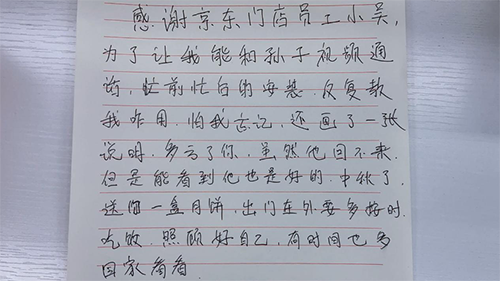 感谢京东门店员工小吴，
为了让我能和孙子视频通
话，忙前忙后的安装．反复教
我咋用．怕我忘记，还画了一张
说明．多亏了你，虽然他回不来．
但是能看到他也是好的．中秋了．
送你一盒月饼，出门在外要多按时．
吃饭．照顾好自己，有时间也多
回家看看